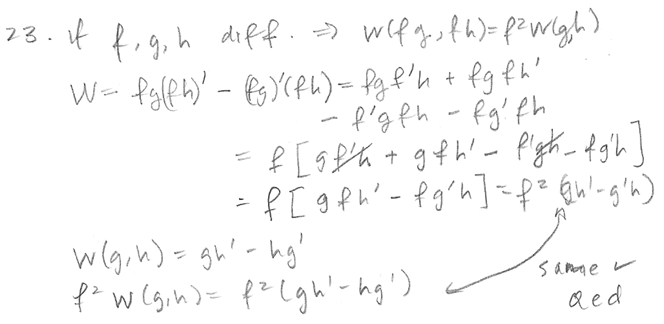 23. if f, g, h diff. ⇒ W(fg, fh) = f²W(g,h)
W = fg(fh)' - (fg)'(fh) = fgf'h + fgfh'
- f'gfh - fg'fh
= f[gf'h + gfh' - f'gh - fg'h]
= f[gfh' - fg'h] = f²(gh' - g'h)
W(g,h) = gh' - hg'
same ✓
f²W(g,h) = f²(gh' - hg')
Qed